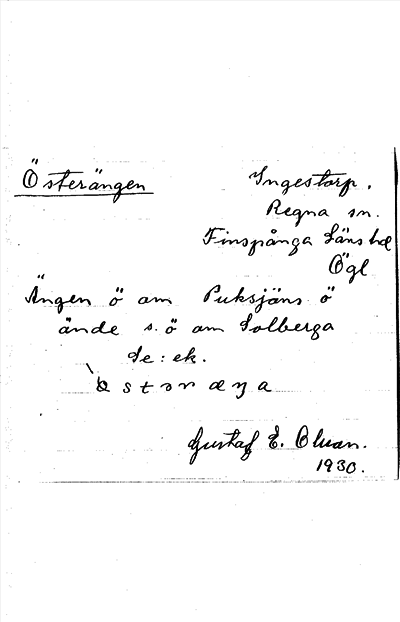 Österängen
Ingestorp.
Regna sn.
Finspånga Läns hd
Ögl
Ängen ö om Puksjäns ö
ände s. ö om Solberga
Se: ek.
östəræŋa
Gustaf E. Olsson.
1930.